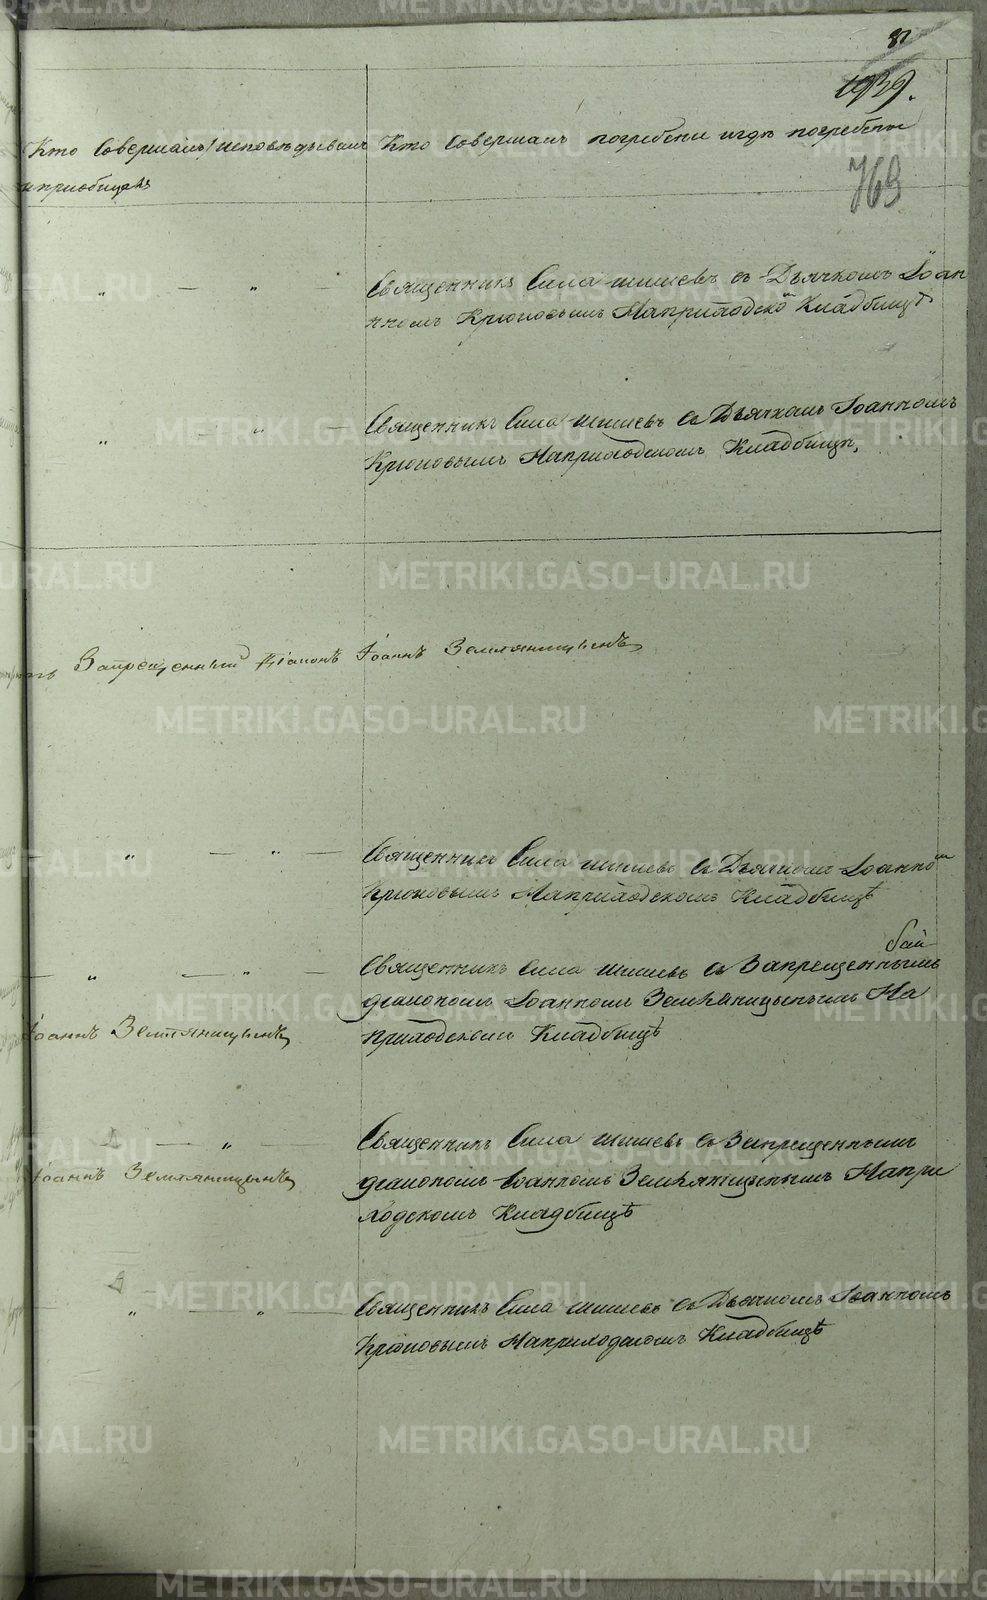 81
1939.
769
Кто Совершалъ исповѣдывалъ
и приобщалъ
Кто Совершалъ погребени и гдѣ погребены
Священникъ Сила Шишевъ съ Дьячкомъ Іоан
номъ Крюковымъ На приходско Кладбищѣ
Священникъ Сила Шишевъ съ Дьячкомъ Іоанномъ
Крюковымъ На приходскомъ Кладбищѣ,
Запрещенный Діаконъ Іоаннъ Земляницынъ
Священникъ Сила Шишевъ съ Дьячкомъ Іоанномъ
Крюковымъ На приходскомъ Кладбищѣ
Священникъ Сила Шишевъ съ Запрещеннымъ
діакономъ Іоанномъ Земляницынымъ На
приходскомъ Кладбищѣ
Іоаннъ Земляницынъ
Священникъ Сила Шишевъ съ Запрещеннымъ
Іоаннъ Земляницынъ
діакономъ Іоанномъ Земляницынымъ На при
ходскомъ Кладбищѣ
Священникъ Сила Шишевъ съ Дьячкомъ Іоанномъ
Крюковымъ На приходскомъ Кладбищѣ
METRIKI.GASO-URAL.RU